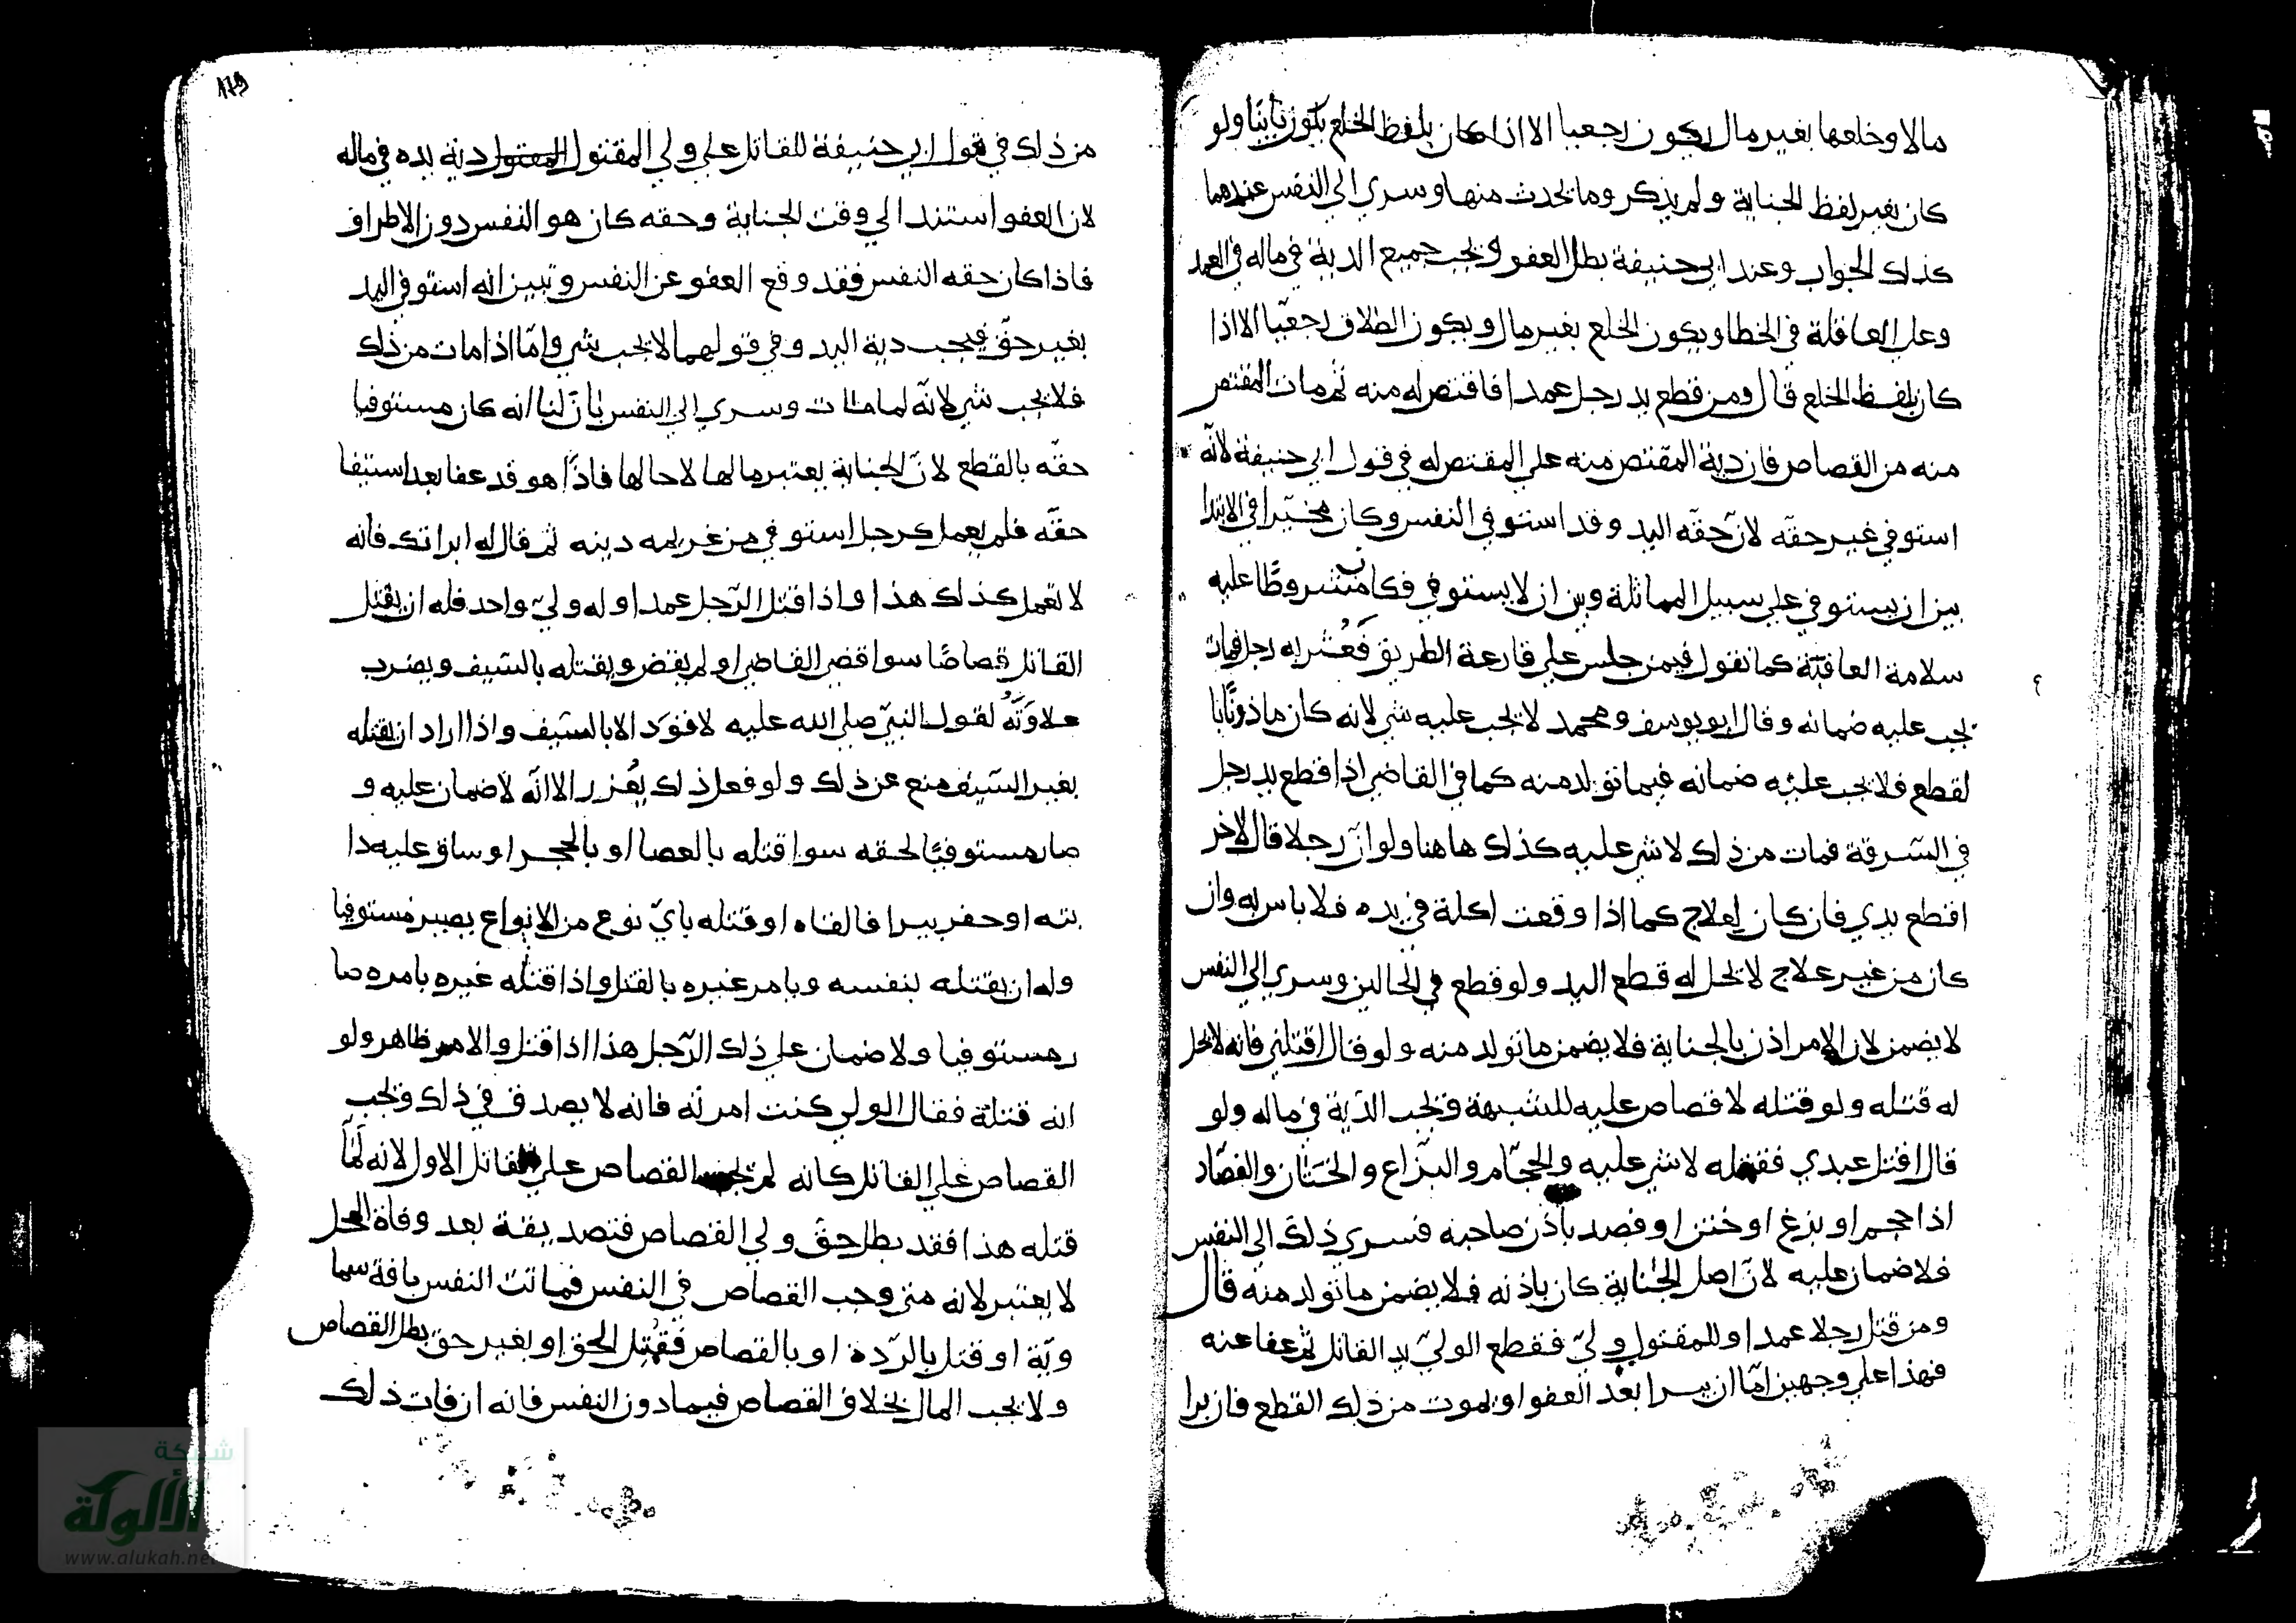 مالا وخلعها بغير مال يكون رجعيا الا اذا كان بلفظ الخلع يكون بائنا ولو
كان بغير لفظ الجناية ولم يذكر وما يحدث منها وسري الي النفس عندهما
كذلك الجواب وعند ابي حنيفة بطل العفو ويجب جميع الدية في ماله في العمد
وعلي العاقلة في الخطا ويكون الخلع بغير مال ويكون الطلاق رجعيّا الا اذا
كان بلفظ الخلع قال ومن قطع يد رجل عمدا فاقتص له منه ثم مات المقتص
منه من القصاص فان دية المقتص منه علي المقتص له في قول ابي حنيفة لانّه
استوفي غير حقّه لانّ حقّه اليد وقد استوفي النفس وكان مخيّرا في الابتدا
بين ان يستوفي علي سبيل المماثلة وبين ان لا يستوفي فكان مشروطًا عليه
سلامة العاقبة كما نقول فيمن جلس علي قارعة الطريق فَعُثر به رجل فمات
يجب عليه ضمانه وقال ابو يوسف ومحمد لا يجب عليه شي لانه كان ماذونًا با
لقطع فلا يجب عليه ضمانه فيما تولد منه كما في القاضي اذا قطع يد رجل
في السّرقة فمات من ذلك لا شي عليه كذلك هاهنا ولو انّ رجلا قال لاخر
اقطع يدي فان كان لعلاج كما اذا وقعت اكلة في يده فلا باس به وان
كان من غير علاج لا يحل له قطع اليد ولو قطع في الحالين وسري الي النفس
لا يضمن لان الامر اذن بالجناية فلا يضمن ما تولد منه ولو قال اقتلني فانه لا يحل
له قتله ولو قتله لا قصاص عليه للشبهة وتجب الدّية في ماله ولو
قال اقتل عبدي فقتله لا شي عليه والحجّام والبزّاغ والختّان والفصّاد
اذا حجم او بزغ او ختن او فصد باذن صاحبه فسري ذلك الي النفس
فلا ضمان عليه لانّ اصل الجناية كان باذنه فلا يضمن ما تولد منه قال
ومن قتل رجلا عمدا وللمقتول وليّ فقطع الوليّ يد القاتل ثم عفا عنه
فهذا علي وجهين امّا ان يبرا بعد العفو او يموت من ذلك القطع فان برا
١٧٩
من ذلك في قول ابي حنيفة للقاتل علي ولي المقتول المقتول دية يده في ماله
لان العفو استند الي وقت الجناية وحقه كان هو النفس دون الاطراف
فاذا كان حقه النفس فقد وقع العفو عن النفس وتبين انه استوفي اليد
بغير حقّ فيجب دية اليد وفي قولهما لا يجب شي وامّا اذا مات من ذلك
فلا يجب شي لانّه لما مات وسري الي النفس بان لنا انه كان مستوفيا
حقّه بالقطع لانّ الجناية يعتبر مالها لا حالها فاذًا هو قد عفا بعد استيفا
حقّه فلم يعمل كرجل استوفي من غريمه دينه ثم قال له ابراتك فانه
لا تعمل كذلك هذا واذا قتل الرّجل عمدا وله وليّ واحد فله ان يقتل
القاتل قصاصًا سوا قضي القاضي او لم يقض ويقتله بالسّيف ويضرب
علاوَتَه لقول النبيّ صلي الله عليه لا قوَد الا بالسّيف واذا اراد ان يقتله
بغير السّيف منع عن ذلك ولو فعل ذلك يُعزر الا انّه لا ضمان عليه و
صار مستوفيًا لحقه سوا قتله بالعصا او بالحجر او ساق عليه دا
بته او حفر بيرا فالقاه او قتله بايّ نوع من الانواع يصير مستوفيا
وله ان يقتله بنفسه ويامر غيره بالقتل واذا قتله غيره بامره صا
ر مستوفيا ولا ضمان علي ذلك الرّجل هذا اذا قتل والامر ظاهر ولو
انه قتله فقال الولي كنت امرته فانه لا يصدق في ذلك ويجب
القصاص علي القاتل كانه لم يجب القصاص علي القاتل الاول لانه لمّا
قتله هذا فقد بطل حقّ ولي القصاص فتصديقه بعد وفاة المحل
لا يعتبر لانه متي وجب القصاص في النفس فماتت النفس بافة سما
ويّة او قتل بالرّدة او بالقصاص فقُتِل لحق او بغير حق بطل القصاص
ولا يجب المال بخلاف القصاص فيما دون النفس فانه ان فات ذلك
شبكة
الألوكة
www.alukah.net